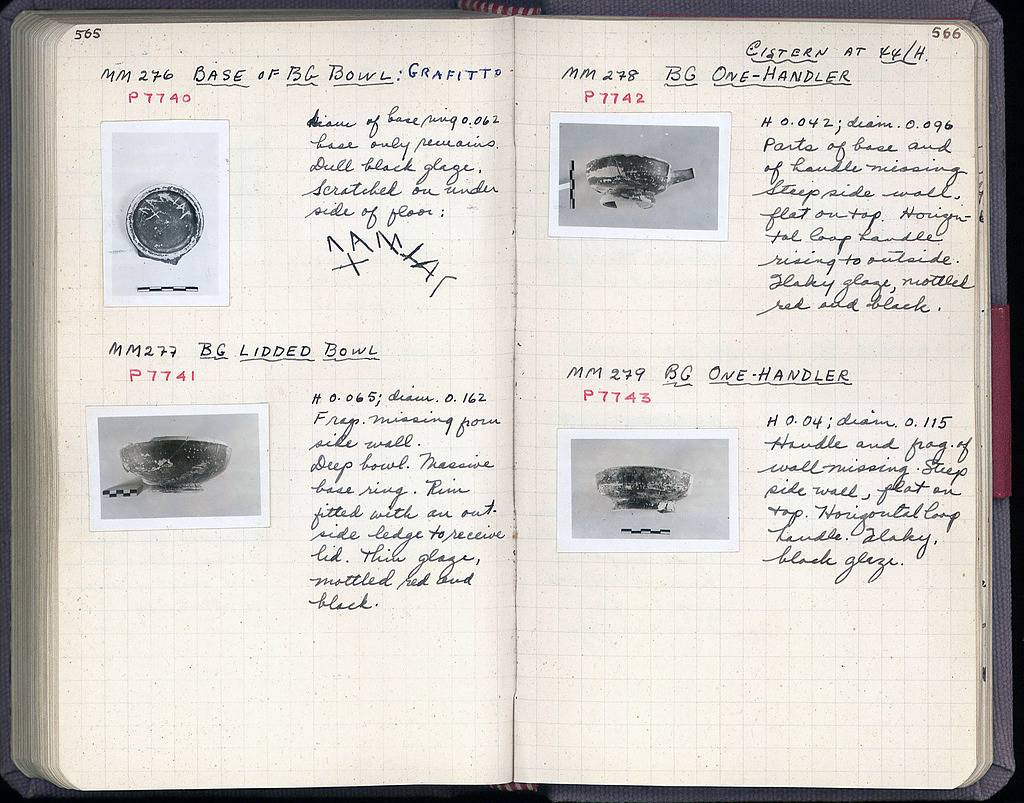 565
MM 276 BASE OF BG BOWL: GRAFITTO
P 7740
diam of base ring 0.062
base only remains.
Dull black glaze.
Scratched on under
side of floor:
MM277 BG LIDDED BOWL
P 7741
H 0.065; diam. 0.162
Frag. missing from
side wall.
Deep bowl. Massive
base ring. Rim
fitted with an out-
side ledge to receive
lid. Thin glaze,
mottled red and
black.
566
CISTERN AT 44/H.
MM 278 BG ONE-HANDLER
P 7742
H 0.042; diam. 0.096
Parts of base and
of handle missing
Steep side wall,
flat on top. Horizon-
tal loop handle
rising to outside.
Flaky glaze, mottled
red and black.
MM 279 BG ONE-HANDLER
P 7743
H 0.04; diam. 0.115
Handle and frag. of
wall missing. Steep
side wall, flat on
top. Horizontal loop
handle. Flaky,
black glaze.